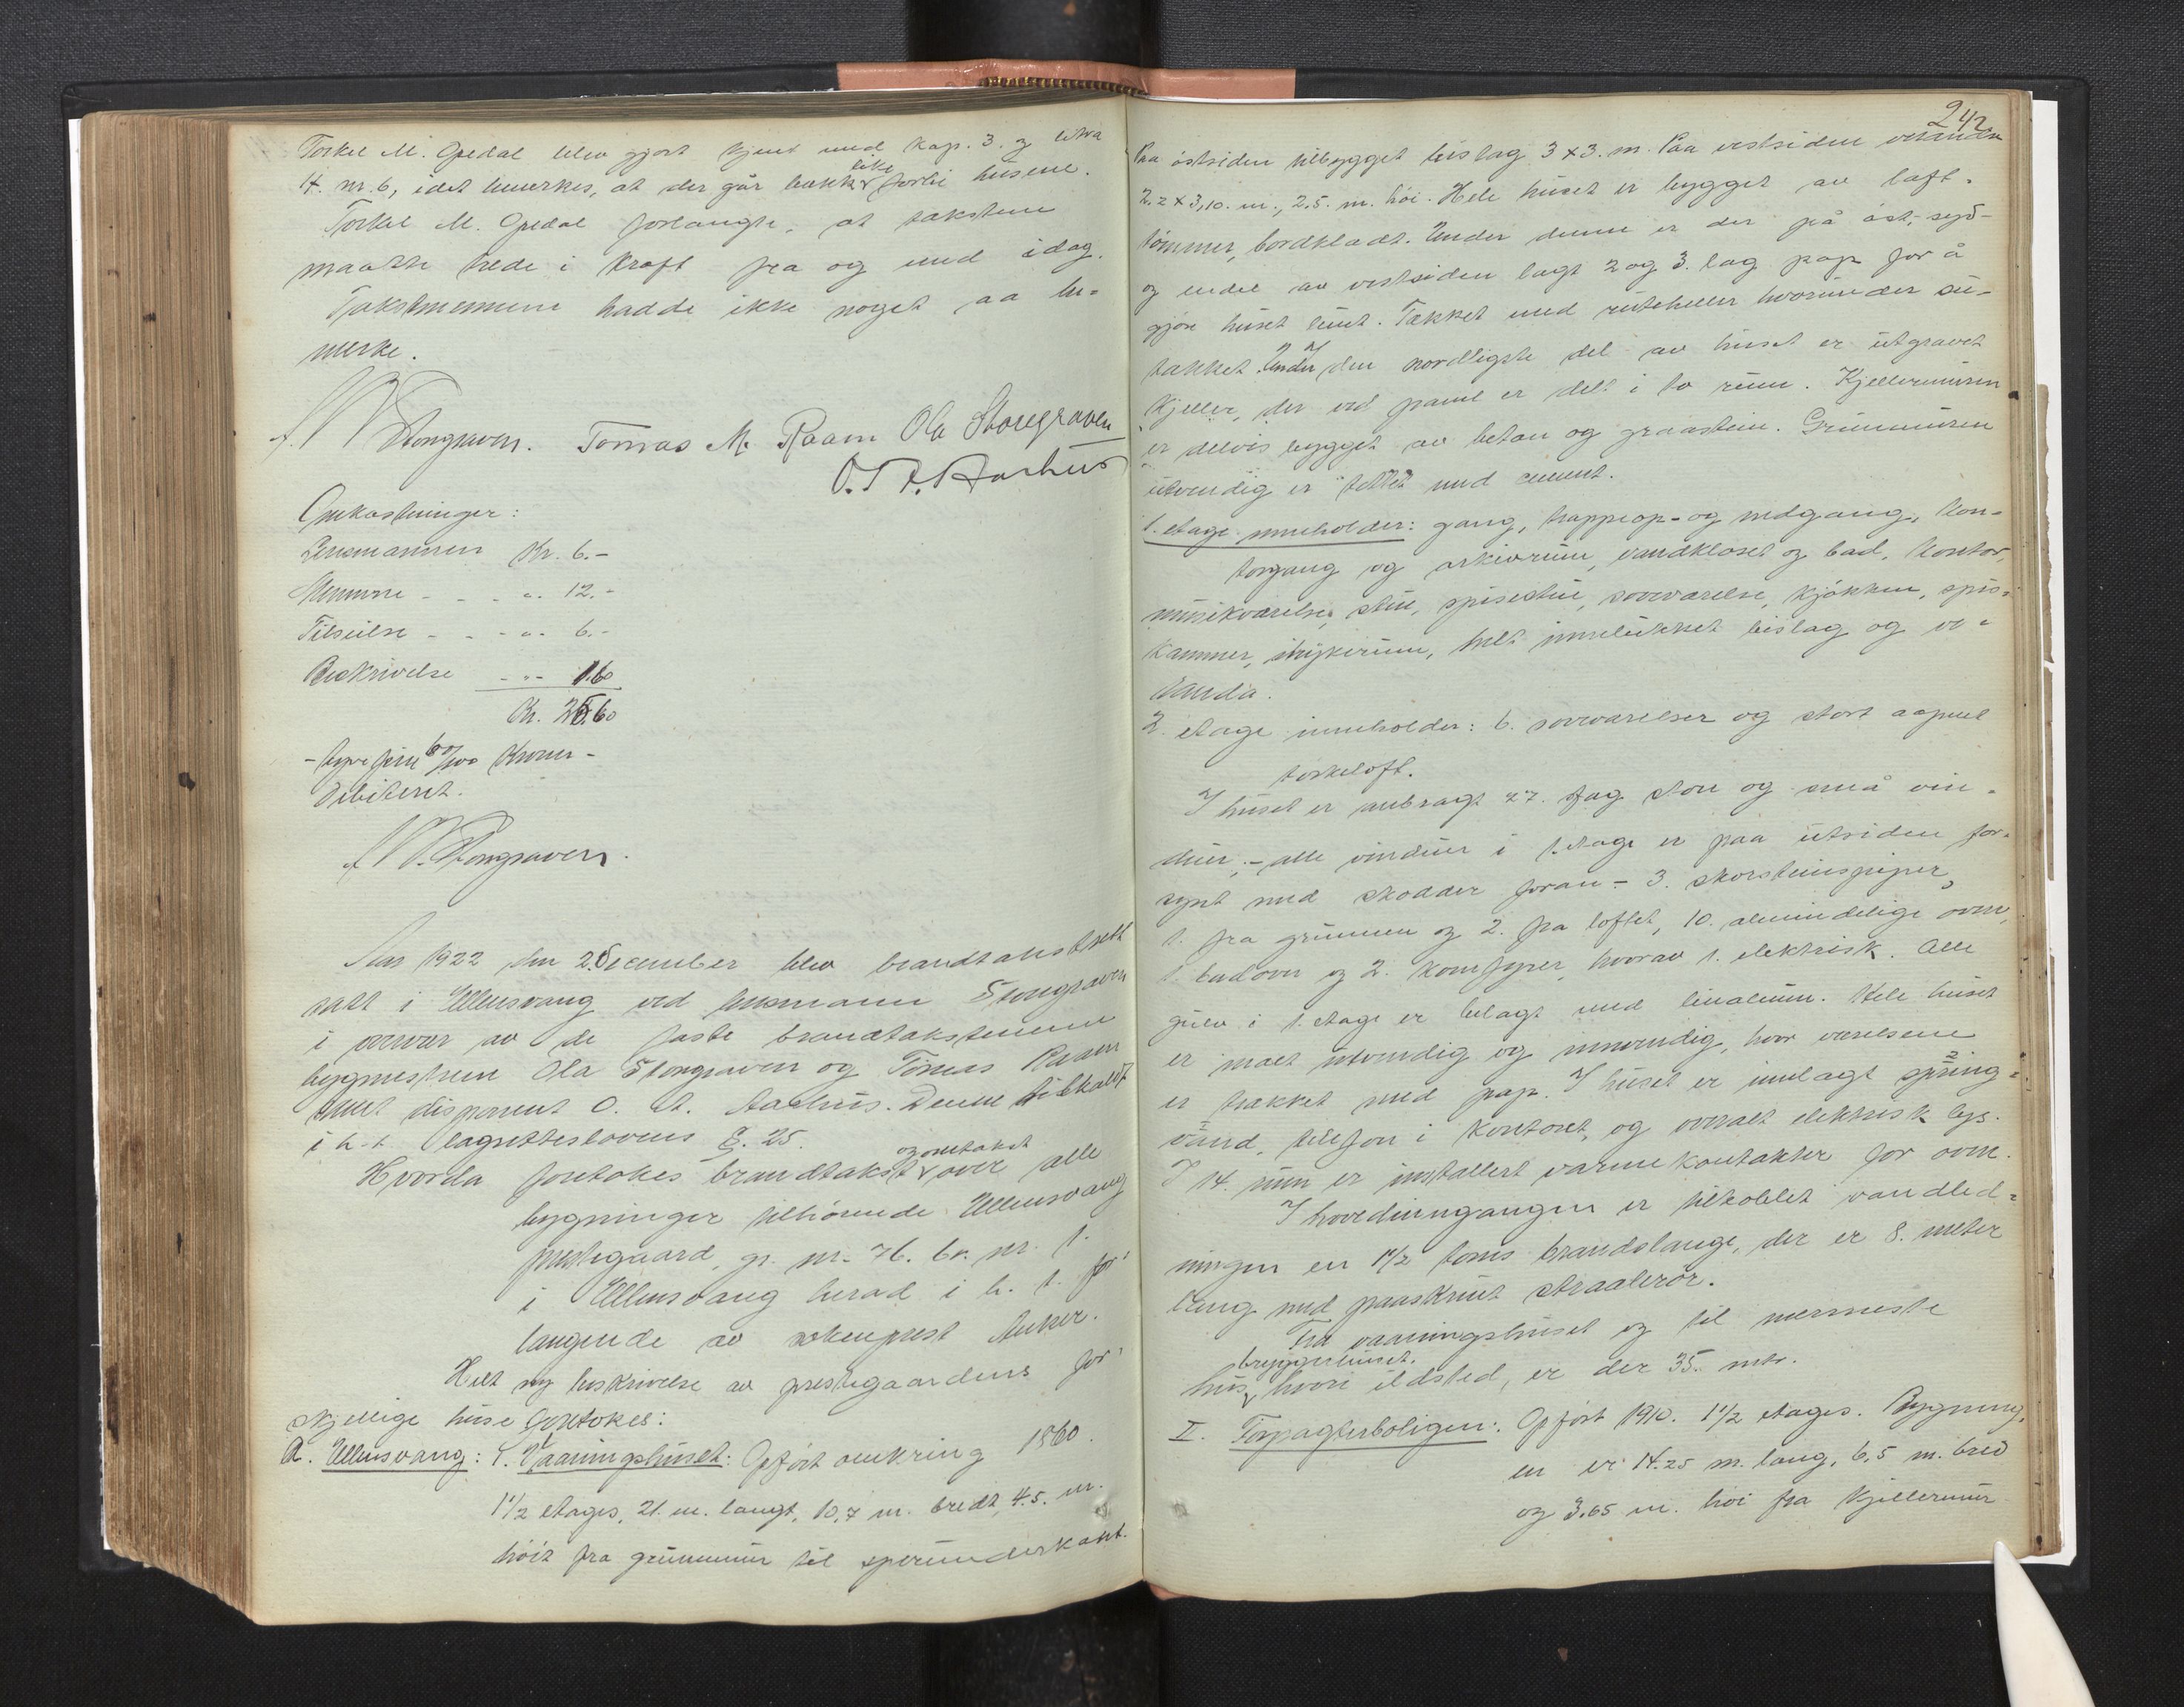 Torkel M. Opedal blev gjort kjent med kap. 3. og litra
H. nr. 6, idet bemerkes, at der går bækk like forbi husene.
Torkel M. Opedal forlangte, at taksten
maatte trede i kraft fra og med idag.
Takstmennene hadde ikke noget aa be-
merke.
Storegraven. Tomas M. Raam Ola Storegraven
O. T. A. Aarhus
Omkostninger:
Lensmannen Kr. 6.-
Mennene - - - „ 12.-
Tilseilse - - - „ 6.-
Beskrivelse - „ - 1.60
Kr. 25.60
- tyve fem 60/100 Kroner -
Debitert.
Storegraven.
Aar 1922 den 2. december blev brandtakstrett
satt i Ullensvang ved lensmann Storegraven
i overvær av de faste brandtakstmenn
bygmestrene Ola Storegraven og Tomas Raam
samt disponent O. A. Aarhus. Denne tilkaldt
i h. t. lagretteslovens §. 25.
Hvorda foretokes brandtakst og omtakst over alle
bygninger tilhørende Ullensvang
prestegaard, gr. nr. 76. br. nr. 1.
i Ullensvang herad i h. t. for-
langende av sokneprest Anker.
Helt ny beskrivelse av prestegaardens for-
skjellige huse foretokes:
A. Ullensvang: 1. Vaaningshuset: Opført omkring 1860.
1 1/2 etages, 21. m. langt, 10,7 m. bredt, 4.5. m.
høit fra grunnmur til sperrunderkant.
242
Paa østsiden tilbygget bislag 3 x 3. m. Paa vestsiden veranda
2.2 x 3,10. m., 2,5. m. høi. Hele huset er bygget av laft-
tømmer, bordklædt. Under denne er der på øst-, syd-
og endel av vestsiden lagt 2 og 3. lag pap for å
gjøre huset lunt. Tækket med ruteheller hvorunder su-
takket. Under den nordligste del av huset er utgravet
Kjeller, der ved panel er delt i to rum. Kjellermuren
er delvis bygget av betan og graastein. Grunmuren
utvendig er tettet med cement.
1. etage inneholder: gang, trappeop- og nedgang, kon-
torgang og arkivrum, vandkloset og bad, kontor,
musikværelse, stue, spisestue, soveværelse, kjøkken, spis-
kammer, strykerum, helt innelukket bislag og ve-
randa.
2. etage inneholder: 6. soveværelser og stort aapent
tørkeloft.
I huset er anbragt 27. fag store og små vin-
duer, - alle vinduer i 1. etage er paa utsiden for-
synt med skodder foran - 3. skorsteinspiper,
1. fra grunnen og 2. fra loftet, 10. almindelige ovne,
1. badovn og 2. komfyrer, hvorav 1. elektrisk. Alle
gulv i 1. etage er belagt med linoleum. Hele huset
er malt utvendig og innvendig, hvor værelsene
er trækket med pap. I huset er innlagt spring-
vand, telefon i kontoret, og overalt elektrisk lys.
I 14. rum er installert varmekontakter for ovn.
I hovedinngangen er tilkoblet vandled-
ningen en 1 1/2 toms brandslange, der er 8. meter
lang med paaskrudt straalerør.
Fra vaaningshuset og til nærmeste
hus, bryggerhuset, hvori ildsted, er der 35. mtr.
II. Forpagterboligen: Opført 1910. 1 1/2 etages. Bygning-
en er 14.25 m. lang, 6,5 m. bred
og 3.65 m. høi fra kjellermur